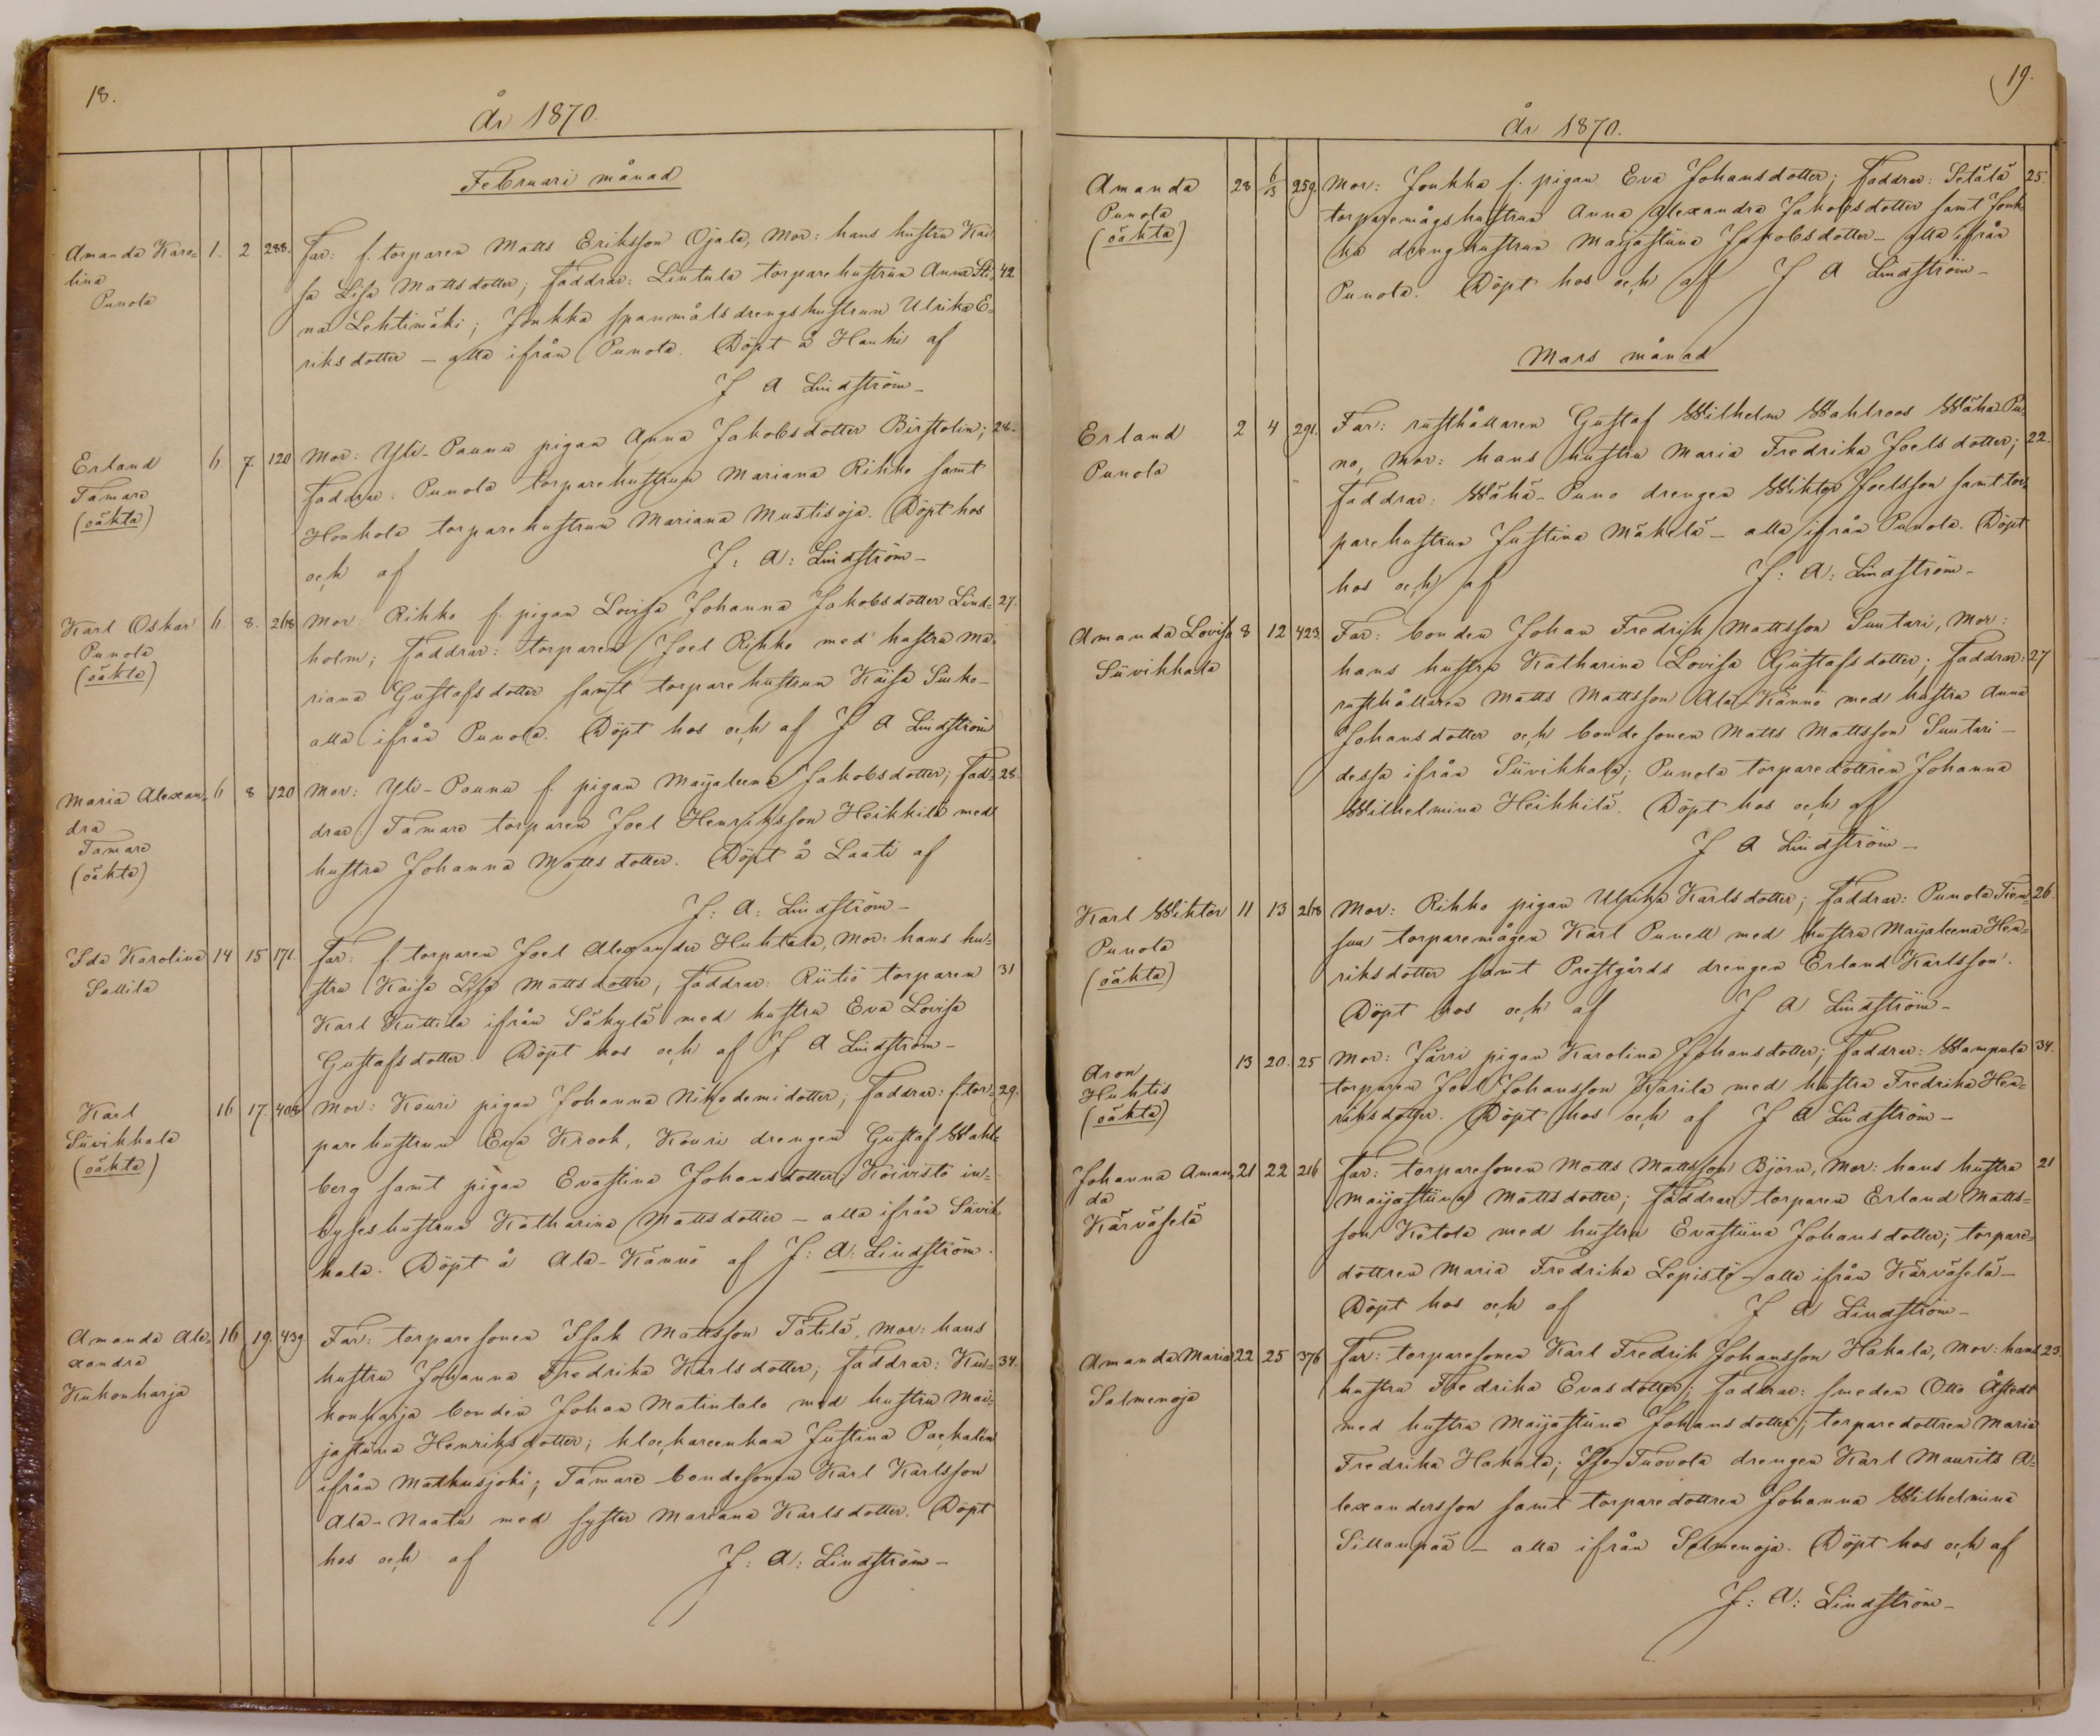 18.
År 1870.
Februari månad
Amanda Karo- 1. 2 288. Far: f. torparen Matts Eriksson Ojala, Mor: hans hustru Kai-
lina sa Lisa Mattsdotter; Faddrar: Lintula torparehustrun Anna Sti- 42
Punola na Lehtimäki; Jonkka spanmålsdrengshustrun Ulrika E-
riksdotter – alla ifrån Punola. Döpt å Hanki af
J A Lindström –
Erland 6 7. 120 Mor: Yli-Paunu pigan Anna Jakobsdotter Birstolin; 28.
Tamare Faddrar: Punola torparehustrun Mariana Rihko samt
(oäkta) Honkola torparehustrun Mariana Mustisoja. Döpt hos
och af J: A: Lindström –
Karl Oskar 6. 8. 268 Mor: Rihko f. pigan Lovisa Johanna Jakobsdotter Lind- 27.
Punola holm; Faddrar: torparen Joel Rihko med hustru Ma-
(oäkta) riana Gustafsdotter samt torparehustrun Kaisa Suko –
alla ifrån Punola. Döpt hos och af J A Lindström
Maria Alexan- 6 8 120 Mor: Yli-Paunu f. pigan Maijaleena Jakobsdotter; Fad- 28.
dra drar Tamare torparen Joel Henriksson Heikkilä med
Tamare hustru Johanna Mattsdotter. Döpt å Laati af
(oäkta)
J: A: Lindström –
Ida Karolina 14 15 171. Far: f. torparen Joel Alexander Huhtala, Mor: hans hu-
Sallila stru Kaisa Lisa Mattsdotter; Faddrar: Riitiö torparen 31
Karl Kuttila ifrån Säkylä med hustru Eva Lovisa
Gustafsdotter. Döpt hos och af J A Lindström –
Karl 16 17. 408 Mor: Kouri pigan Johanna Nikodemidotter; Faddrar: f. tor- 29.
Suvikkala parehustrun Eva Krook, Kouri drengen Gustaf Wahl-
(oäkta) berg samt pigan Evastina Johansdotter, Koivisto in-
hyseshustrun Katharina Mattsdotter – alla ifrån Suvik-
kala. Döpt å Ala-Kännö af J: A: Lindström.
Amanda Ale- 16 19. 439. Far: torparesonen Isak Mattsson Tätilä, Mor: hans
xandra hustru Johanna Fredrika Karlsdotter; Faddrar: Ku- 34.
Kukonharja konharja bonden Johan Matintalo med hustru Mai-
jastiina Henriksdotter; klockareenkan Justina Packalén
ifrån Mathusjoki; Tamare bondesonen Karl Karlsson
Ala-Naatu med syster Mariana Karlsdotter. Döpt
hos och af J: A: Lindström –
19.
År 1870.
Amanda 28 6/3 259. Mor: Jonkka f. pigan Eva Johansdotter; Faddrar: Setälä 25.
Punola torparemågshustrun Anna Alexandra Jakobsdotter samt Jonk-
(oäkta) ka drenghustrun Maijastiina Jakobsdotter – alla ifrån
Punola. Döpt hos och af J A Lindström –
Mars månad
Erland 2 4 291. Far: rusthållaren Gustaf Wilhelm Wahlroos Wähä-Pu-
Punola no, Mor: hans hustru Maria Fredrika Joelsdotter; 22.
Faddrar: Wähä-Puno drengen Wiktor Joelsson samt tor-
parehustrun Justina Mäkelä – alla ifrån Punola. Döpt
hos och af J: A: Lindström –
Amanda Lovisa 8 12 423. Far: bonden Johan Fredrik Mattsson Suutari, Mor:
Suvikkala hans hustru Katharina Lovisa Gustafsdotter; Faddrar: 27
rusthållaren Matts Mattsson Ala-Kännö med hustru Anna
Johansdotter och bondesonen Matts Mattsson Suutari –
dessa ifrån Suvikkala; Punola torparedottren Johanna
Wilhelmina Heikkilä. Döpt hos och af
J A Lindström –
Karl Wiktor 11 13 268 Mor: Rihko pigan Ulrika Karlsdotter; Faddrar: Punola Tien- 26.
Punola suu torparemågen Karl Punell med hustru Maijaleena Hen-
(oäkta) riksdotter samt Prestgårds drengen Erland Karlsson.
Döpt hos och af J A Lindström –
Aron 13 20. 25 Mor: Järri pigan Karolina Johansdotter; Faddrar: Wampula 34.
Huhtis torparen Joel Johansson Karila med hustru Fredrika Hen-
(oäkta) riksdotter. Döpt hos och af J A Lindström –
Johanna Aman- 21 22 216 Far: torparesonen Matts Mattsson Björn, Mor: hans hustru 21
da Maijastiina Mattsdotter; Faddrar torparen Erland Matts-
Kärväselä son Ketola med hustru Evastiina Johansdotter; torpare-
dottren Maria Fredrika Lepistö – alla ifrån Kärväselä –
Döpt hos och af J A Lindström –
Amanda Maria 22 25 376 Far: torparesonen Karl Fredrik Johansson Hakala, Mor: hans 23.
Salmenoja hustru Fredrika Evasdotter; Faddrar: smeden Otto Åstedt
med hustru Maijastiina Johansdotter; torparedottren Maria
Fredrika Hakala; Iso-Tuovola drengen Karl Maurits A-
lexandersson samt torparedottren Johanna Wilhelmina
Sillanpää – alla ifrån Salmenoja. Döpt hos och af
J: A: Lindström –